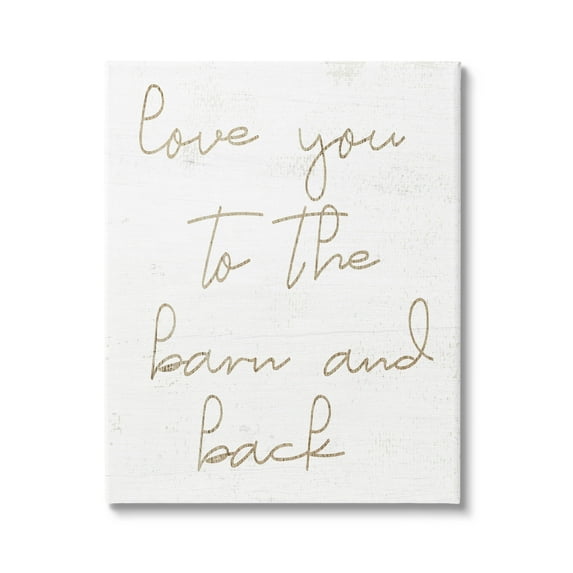 love you
to the
barn and
back